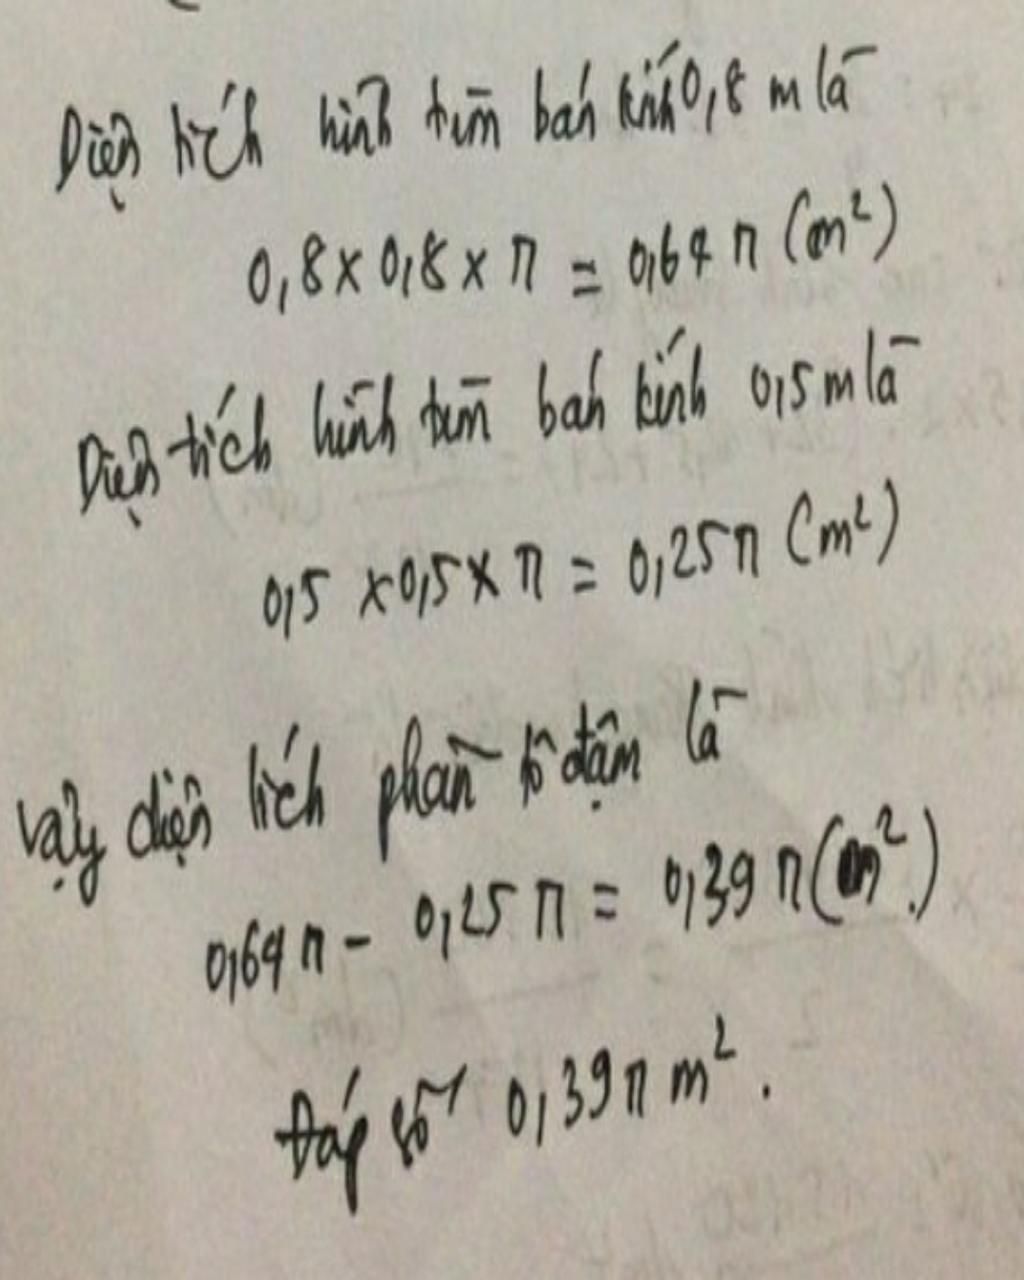 Diện tích hình tròn bán kính 0,8 m là
0,8 x 0,8 x π = 0,64 π (m²)
Diện tích hình tròn bán kính 0,5 m là
0,5 x 0,5 x π = 0,25 π (m²)
Vậy diện tích phần tô đậm là
0,64 π - 0,25 π = 0,39 π (m².)
Đáp số 0,39 π m².